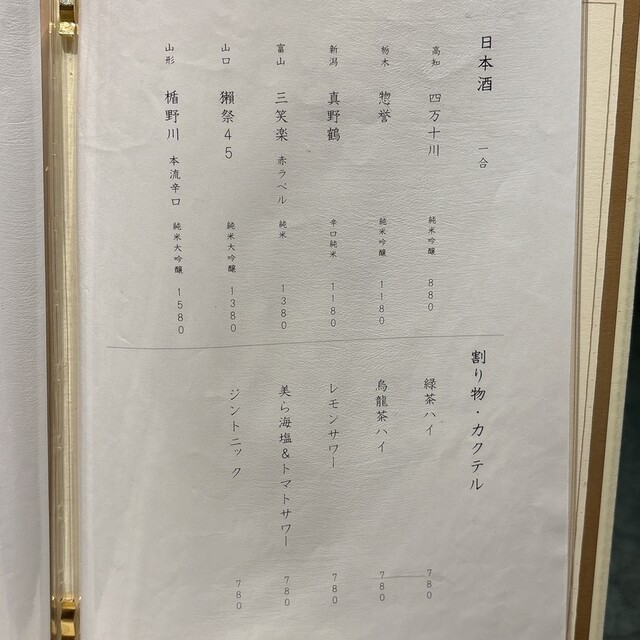 日本酒 一合
高知 四万十川 純米吟醸 880
栃木 惣誉 純米吟醸 1180
新潟 真野鶴 辛口純米 1180
富山 三笑楽 赤ラベル 純米 1380
山口 獺祭45 純米大吟醸 1380
山形 楯野川 本流辛口 純米大吟醸 1580
割り物・カクテル
緑茶ハイ 780
烏龍茶ハイ 780
レモンサワー 780
美ら海塩&トマトサワー 780
ジントニック 780